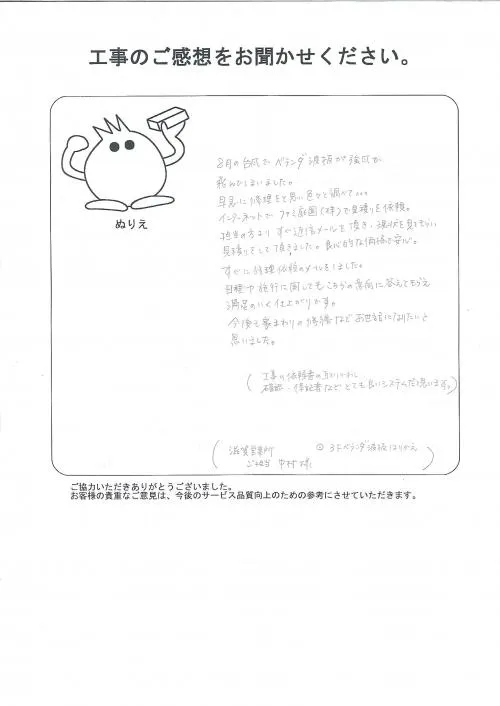 工事のご感想をお聞かせください。
ぬりえ
8月の台風でベランダ波板が強風で
飛んでしまいました。
早急に修理をと思い色々と調べて。。。
インターネットで ファミ庭園(株)で見積りを依頼。
担当の方より すぐ返信メールを頂き、現状を見てもらい
見積りをして頂きました。良心的な価格で安心。
すぐに修理依頼のメールをしました。
日程や施行に関しても こちらの意向に答えてもらえ
満足のいく仕上がりです。
今後も家まわりの修繕など お世話になりたいと
思いました。
工事の依頼書の取りかわし
確認・保証書など とても良いシステムだと思います。
滋賀営業所
ご担当 中村様
3Fベランダ波板はりかえ
ご協力いただきありがとうございました。
お客様の貴重なご意見は、今後のサービス品質向上のための参考にさせていただきます。